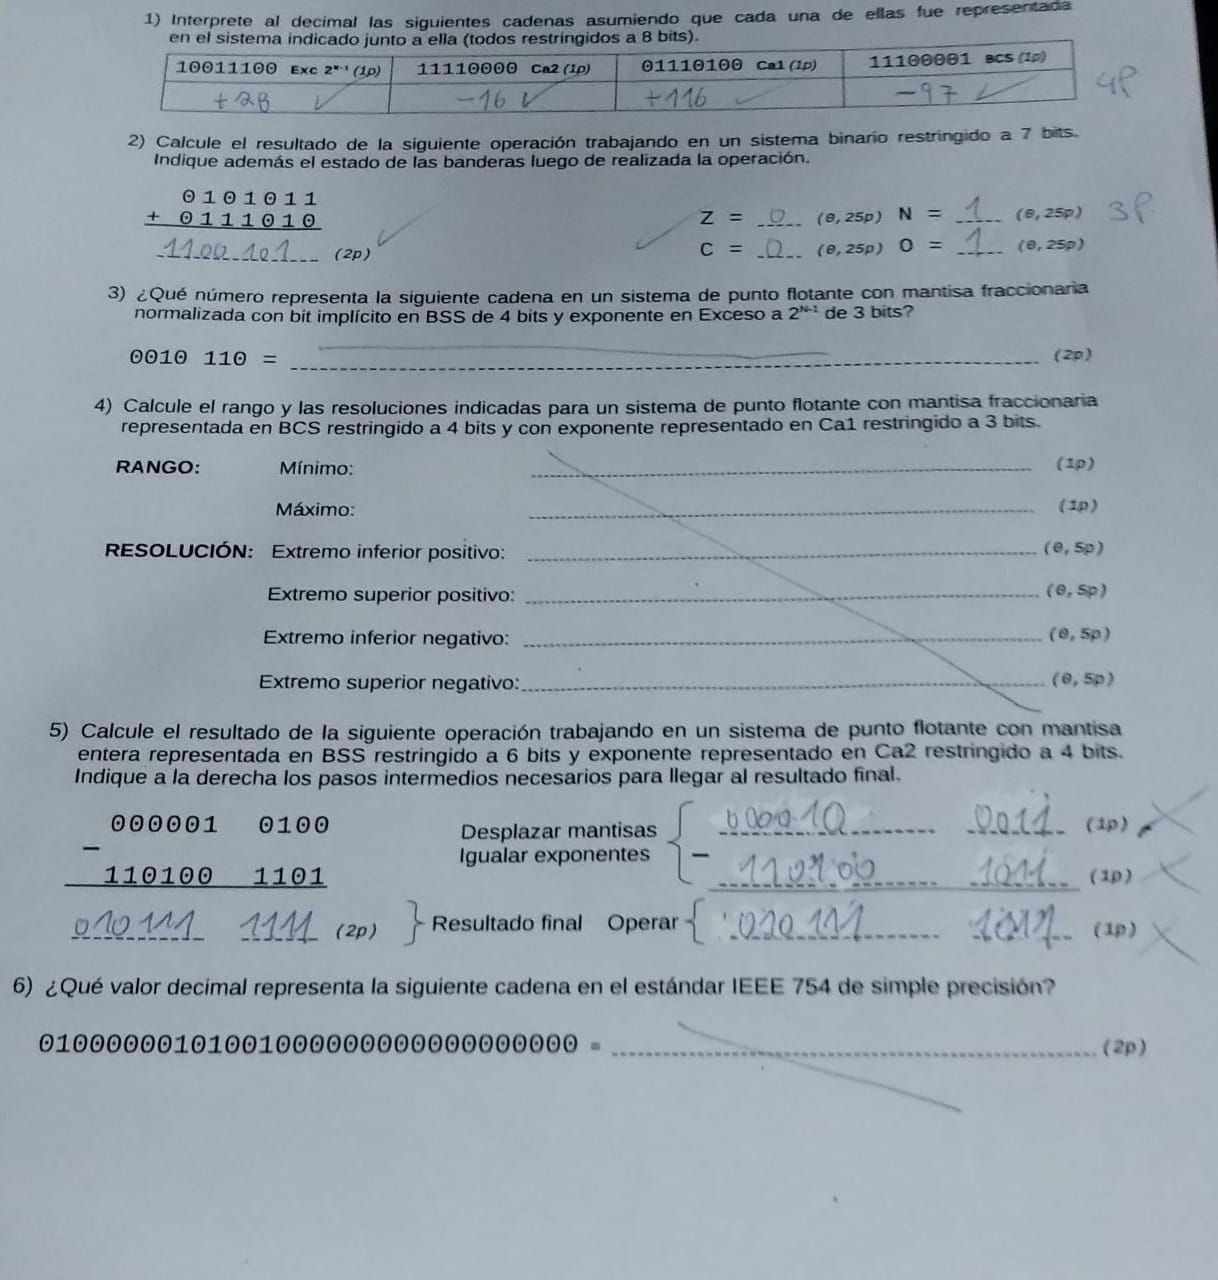 1) Interprete al decimal las siguientes cadenas asumiendo que cada una de ellas fue representada
en el sistema indicado junto a ella (todos restringidos a 8 bits).
10011100 Exc 2ⁿ⁻¹ (1p) 11110000 Ca2 (1p) 01110100 Ca1 (1p) 11100001 BCS (1p)
+28 ✓ -16 ✓ +116 ✓ -97 ✓ 4P
2) Calcule el resultado de la siguiente operación trabajando en un sistema binario restringido a 7 bits.
Indique además el estado de las banderas luego de realizada la operación.
0101011
+ 0111010 Z = 0 (0,25p) N = 1 (0,25p) 3P
1100101 (2p) C = 0 (0,25p) O = 1 (0,25p)
3) ¿Qué número representa la siguiente cadena en un sistema de punto flotante con mantisa fraccionaria
normalizada con bit implícito en BSS de 4 bits y exponente en Exceso a 2ᴺ⁻¹ de 3 bits?
0010 110 = (2p)
4) Calcule el rango y las resoluciones indicadas para un sistema de punto flotante con mantisa fraccionaria
representada en BCS restringido a 4 bits y con exponente representado en Ca1 restringido a 3 bits.
RANGO: Mínimo: (1p)
Máximo: (1p)
RESOLUCIÓN: Extremo inferior positivo: (0,5p)
Extremo superior positivo: (0,5p)
Extremo inferior negativo: (0,5p)
Extremo superior negativo: (0,5p)
5) Calcule el resultado de la siguiente operación trabajando en un sistema de punto flotante con mantisa
entera representada en BSS restringido a 6 bits y exponente representado en Ca2 restringido a 4 bits.
Indique a la derecha los pasos intermedios necesarios para llegar al resultado final.
000001 0100 Desplazar mantisas 000010 0011 (1p)
- Igualar exponentes -
110100 1101 110100 1011 (1p)
010111 1111 (2p) Resultado final Operar 010111 (1p)
6) ¿Qué valor decimal representa la siguiente cadena en el estándar IEEE 754 de simple precisión?
01000000101001000000000000000000 = (2p)